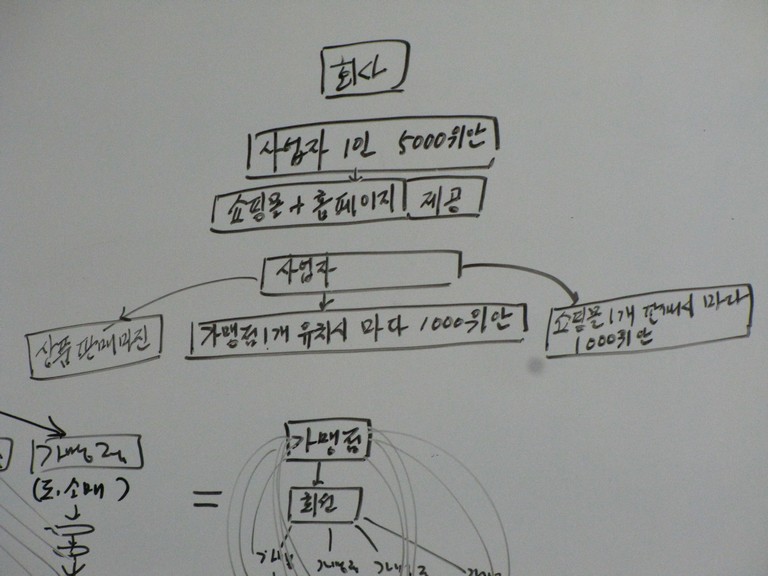 회사
사업자 1인 5000위안
쇼핑몰 + 홈페이지 제공
사업자
상품 판매마진
가맹점 1개 유치시 마다 1000위안
쇼핑몰 1개 판매시 마다
1000위안
가맹점
(도.소매)
=
가맹점
회원